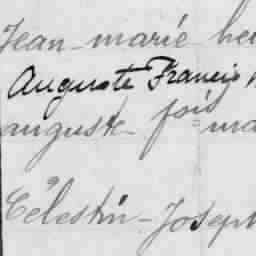 Jean-marie he
Auguste Francis
auguste-
Célestin-Joseph